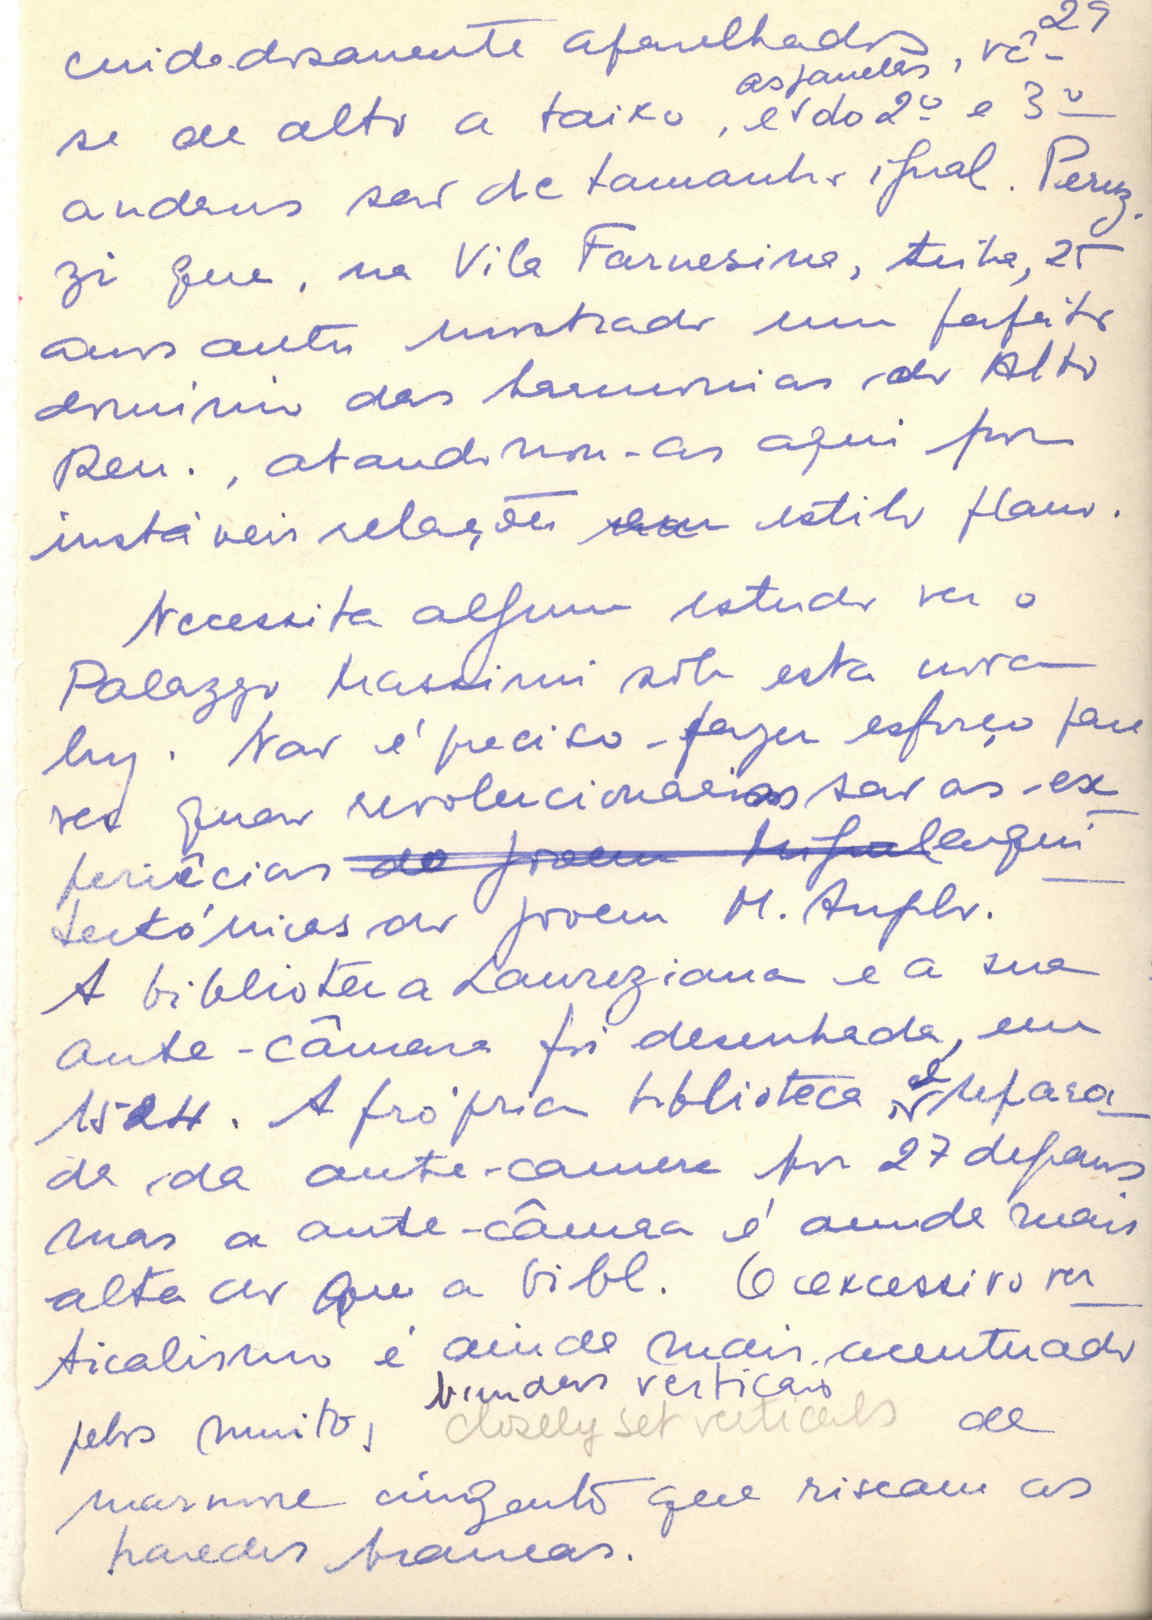 29
cuidadosamente aparelhados, vê-
se de alto a baixo, e as janelas do 2º e 3º
andares são de tamanho igual. Peruz-
zi que, na Vila Farnesina, tinha, 25
anos antes mostrado um perfeito
domínio das harmonias do Alto
Ren., abandonou-as aqui por
instáveis relações em estilo plano.
Necessita algum estudo ver o
Palazzo Massimi sob esta nova
luz. Não é preciso fazer esforço para
ver quão revolucionárias são as ex-
periências do jovem arqui-
tectónicas do jovem M. Anglo.
A biblioteca Laureziana e a sua
ante-câmara foi desenhada, em
1524. A própria biblioteca é separa-
da da ante-camera por 27 degraus
mas a ante-câmara é ainda mais
alta do que a bibl. O excessivo ver-
ticalismo é ainda mais acentuado
verticais
pelos muitos closely set verticals de
marmore cinzento que riscam as
paredes brancas.